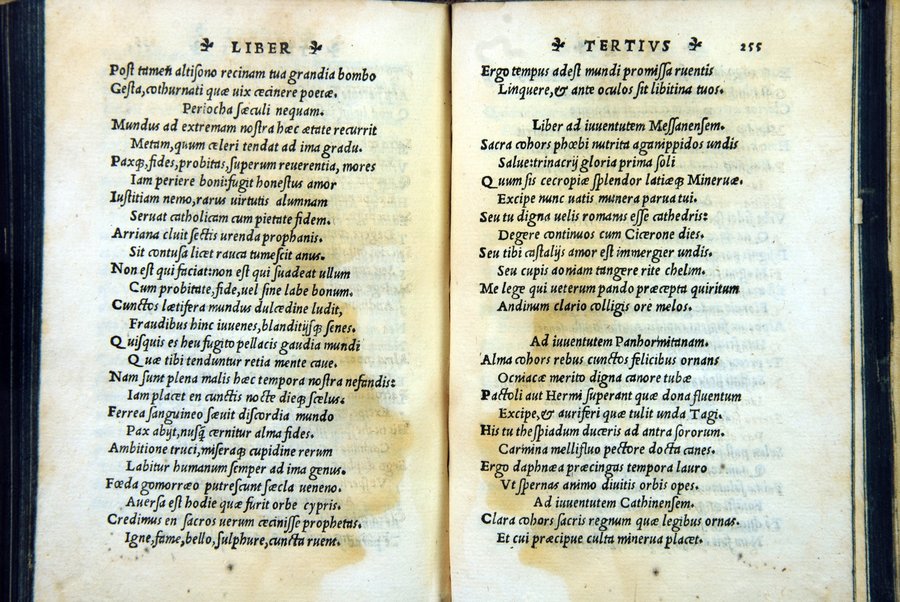 LIBER
Post tamen altisono recinam tua grandia bombo
Gesta, cothurnati quæ uix cecinere poetæ.
Periocha sæculi nequam.
Mundus ad extremam nostra hæc ætate recurrit
Metam, quum celeri tendat ad ima gradu.
Paxq;, fides, probitas, superum reuerentia, mores
Iam periere boni: fugit honestus amor
Iustitiam nemo, rarus uirtutis alumnam
Seruat catholicam cum pietate fidem.
Arriana cluit sectis urenda prophanis.
Sit contusa licet rauca tumescit anus.
Non est qui faciat: non est qui suadeat ullum
Cum probitate, fide, uel sine labe bonum.
Cunctos lætifera mundus dulcedine ludit,
Fraudibus hinc iuuenes, blanditijsq; senes.
Quisquis es heu fugito pellacis gaudia mundi
Quæ tibi tenduntur retia mente caue.
Nam sunt plena malis hæc tempora nostra nefandis:
Iam placet en cunctis nocte dieq; scelus.
Ferrea sanguineo sæuit discordia mundo
Pax abijt, nusq̃ cernitur alma fides.
Ambitione truci, miseraq; cupidine rerum
Labitur humanum semper ad ima genus.
Fœda gomorræo putrescunt sæcla ueneno.
Auersa est hodie quæ furit orbe cypris.
Credimus en sacros uerum cecinisse prophetas.
Igne, fame, bello, sulphure, cuncta ruent.
TERTIVS 255
Ergo tempus adest mundi promissa ruentis
Linquere, & ante oculos sit libitina tuos.
Liber ad iuuentutem Messanensem.
Sacra cohors phœbi nutrita aganippidos undis
Salue: trinacrij gloria prima soli
Quum sis cecropiæ splendor latiæq; Mineruæ.
Excipe nunc uatis munera parua tui.
Seu tu digna uelis romanis esse cathedris:
Degere continuos cum Cicerone dies.
Seu tibi castalijs amor est immergier undis.
Seu cupis aoniam tangere rite chelim.
Me lege qui ueterum pando præcepta quiritum
Andinum clario colligis ore melos.
Ad iuuentutem Panhormitanam.
Alma cohors rebus cunctos felicibus ornans
Ocniacæ merito digna canore tubæ
Pactoli aut Hermi superant quæ dona fluentum
Excipe, & auriferi quæ tulit unda Tagi.
His tu thespiadum duceris ad antra sororum.
Carmina mellifluo pectore docta canes.
Ergo daphnæa præcingas tempora lauro
Vt spernas animo diuitis orbis opes.
Ad iuuentutem Cathinensem.
Clara cohors sacris regnum quæ legibus ornas.
Et cui præcipue culta minerua placet.